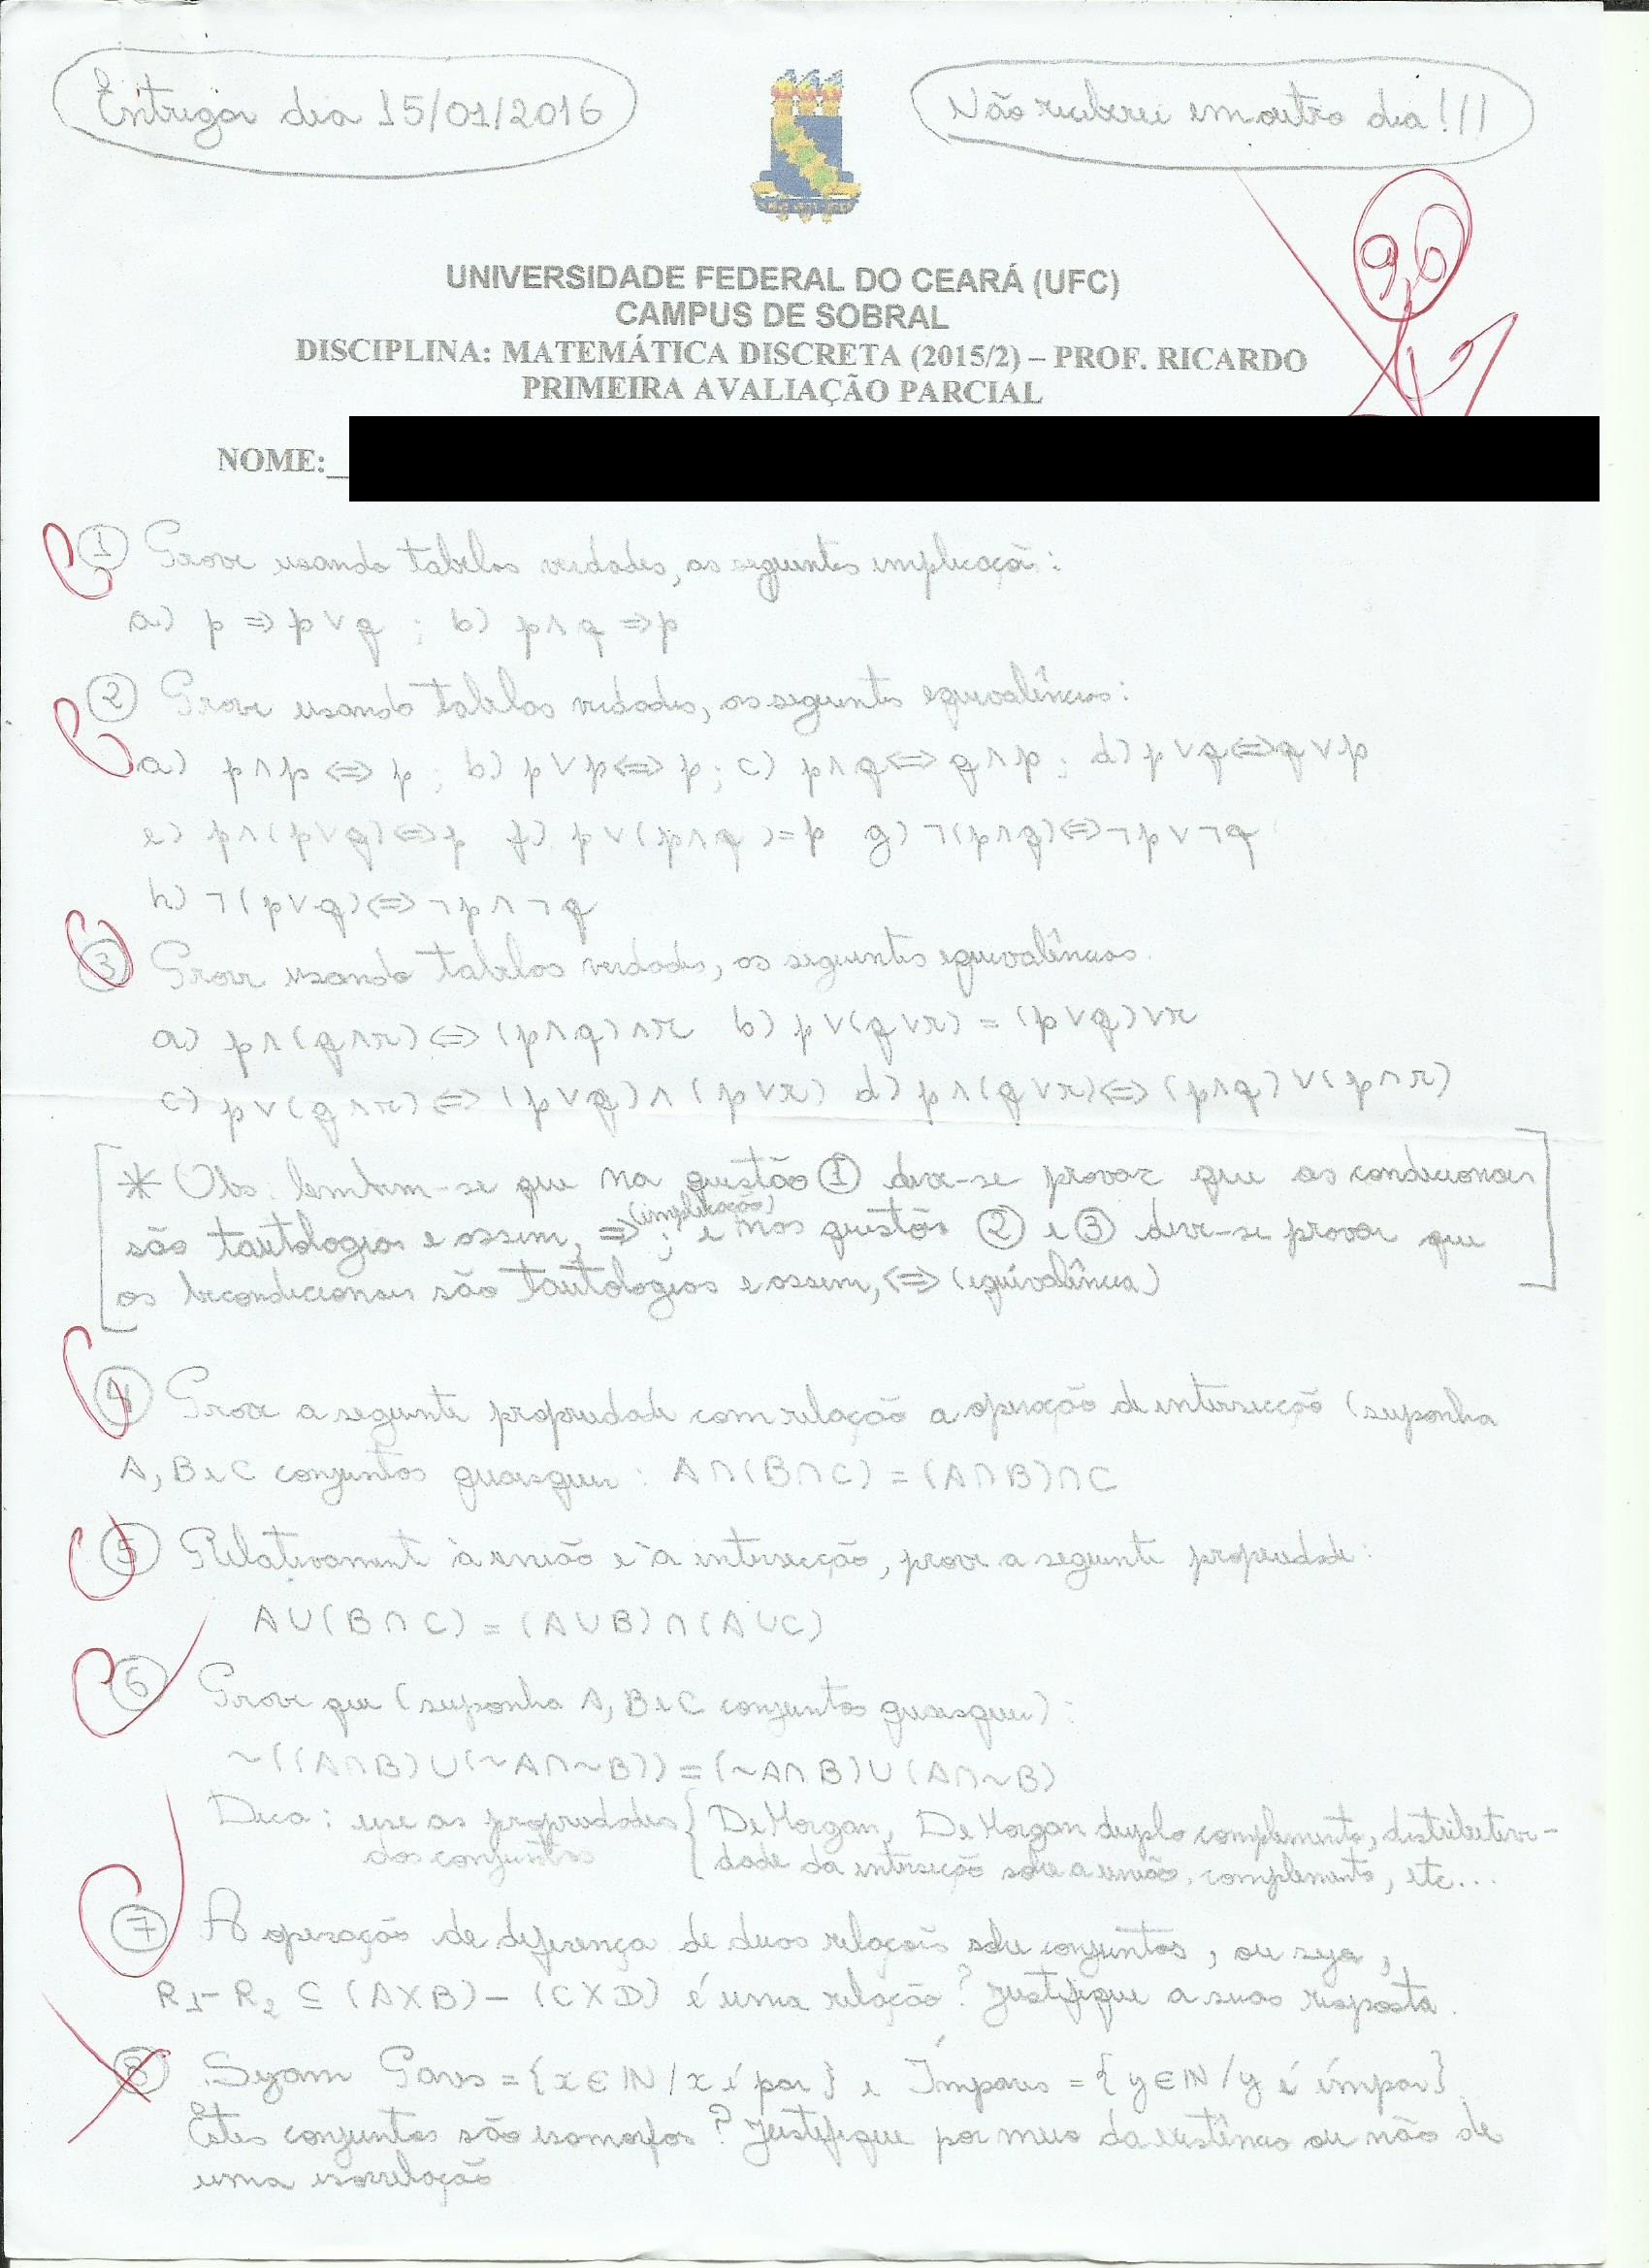 Entregar dia 15/01/2016
Não receberei em outro dia!!!
9,6
UNIVERSIDADE FEDERAL DO CEARÁ (UFC)
CAMPUS DE SOBRAL
DISCIPLINA: MATEMÁTICA DISCRETA (2015/2) – PROF. RICARDO
PRIMEIRA AVALIAÇÃO PARCIAL
NOME:
① Prove usando tabelas verdades, as seguintes implicações:
a) p ⇒ p ∨ q ; b) p ∧ q ⇒ p
② Prove usando tabelas verdades, as seguintes equivalências:
a) p ∧ p ⇔ p; b) p ∨ p ⇔ p; c) p ∧ q ⇔ q ∧ p; d) p ∨ q ⇔ q ∨ p
e) p ∧ (p ∨ q) ⇔ p f) p ∨ (p ∧ q) = p g) ¬(p ∧ q) ⇔ ¬p ∨ ¬q
h) ¬(p ∨ q) ⇔ ¬p ∧ ¬q
③ Prove usando tabelas verdades, as seguintes equivalências.
a) p ∧ (q ∧ r) ⇔ (p ∧ q) ∧ r b) p ∨ (q ∨ r) = (p ∨ q) ∨ r
c) p ∨ (q ∧ r) ⇔ (p ∨ q) ∧ (p ∨ r) d) p ∧ (q ∨ r) ⇔ (p ∧ q) ∨ (p ∧ r)
* Obs: lembrem-se que na questão ① deve-se provar que as condicionais
são tautologias e assim, ⇒ (implicação); e nas questão ② e ③ deve-se provar que
as bicondicionais são tautologias e assim, ⇔ (equivalência)
④ Prove a seguinte propriedade com relação a operação de intersecção (suponha
A, B e C conjuntos quaisquer: A ∩ (B ∩ C) = (A ∩ B) ∩ C
⑤ Relativamente à união e à intersecção, prove a seguinte propriedade:
A ∪ (B ∩ C) = (A ∪ B) ∩ (A ∪ C)
⑥ Prove que (suponha A, B e C conjuntos quaisquer):
~((A ∩ B) ∪ (~A ∩ ~B)) = (~A ∩ B) ∪ (A ∩ ~B)
Dica: use as propriedades { DeMorgan, DeMorgan duplo complemento, distributivi-
dos conjuntos { dade da interseção sobre a união, complemento, etc...
⑦ A operação de diferença de duas relações sobre conjuntos, ou seja,
R1 - R2 ⊆ (A X B) - (C X D) é uma relação? Justifique a suas resposta.
⑧ Sejam Pares = {x ∈ ℕ / x é par} e Ímpares = {y ∈ ℕ / y é ímpar}.
Estes conjuntos são isomorfos? Justifique por meio da existência ou não de
uma isorrelação